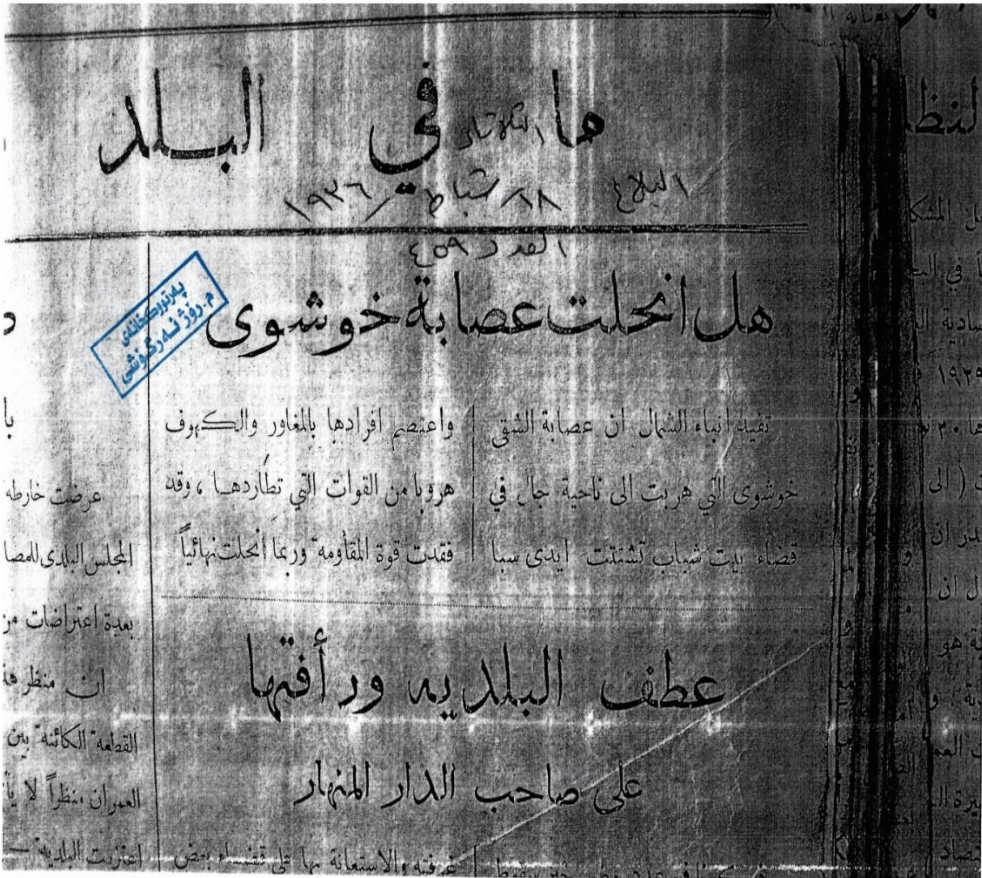 ما في البلد
الثلاثاء
البلاغ ١٨/ شباط /١٩٣٦
العدد ٤٥٩
هل انحلت عصابة خوشوى
تفيد انباء الشمال ان عصابة الشقى
خوشوى التي هربت الى ناحية جال في
قضاء بيت شباب تشتتت ايدى سبا
واعتصم افرادها بالمغاور والكهوف
هروبا من القوات التي تطاردهـا ، وقد
فقدت قوة المقاومة وربما انحلت نهائياً
عطف البلديه ورأفتها
على صاحب الدار المنهار
غرفيه والاستعانة بها على قضاء بعض
عرضت خارطه
المجلس البلدى للمصا
بعدة اعتراضات من
ان منظر
القطعه الكائنة بين
العمران منظراً لا يأ
البلدية
پەرتووکخانەی
م. رۆژ نەرگوشی